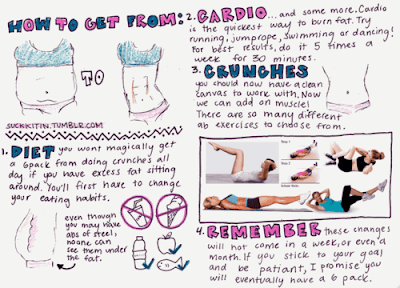 HOW TO GET FROM:
TO
SUCKKITIN.TUMBLR.COM
1. DIET you wont magically get
a 6pack from doing crunches all
day if you have excess fat sitting
around. You'll first have to change
your eating habits.
even though
you may have
abs of steel,
noone can
see them under
the fat.
2. CARDIO ...and some more. Cardio
is the quickest way to burn fat. Try
running, jumprope, swimming or dancing!
For best results, do it 5 times a
week for 30 minutes.
3. CRUNCHES
you should now have a clean
canvas to work with. Now
we can add on muscle!
There are so many different
ab exercises to choose from.
Step 1
Step 2
4. REMEMBER these changes
will not come in a week, or even a
month. If you stick to your goal
and be patiant, I promise you
will eventually have a 6 pack.